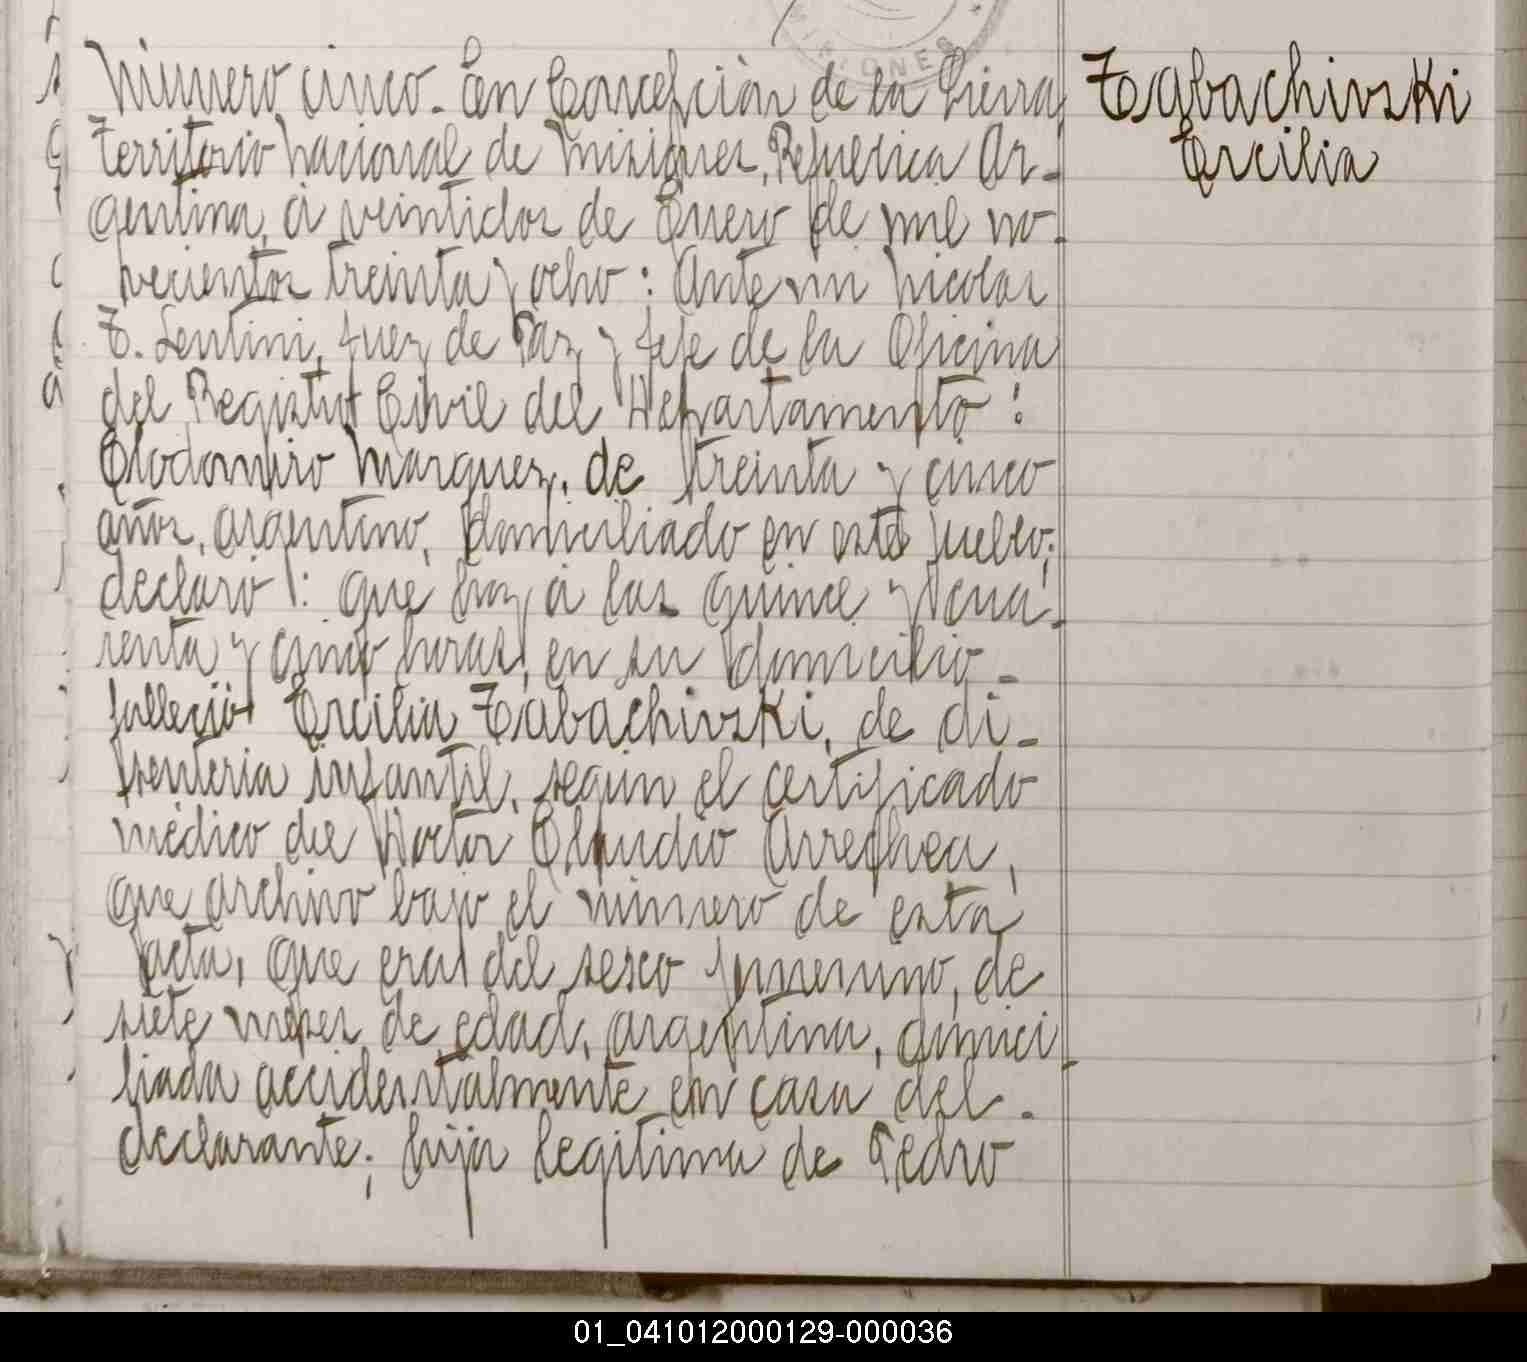 Número cinco. En Concepción de la Sierra
Territorio Nacional de Misiones, República Ar-
gentina, á veintidos de Enero de mil no-
vecientos treinta y ocho: Ante mi Nicolas
T. Lentini, Juez de Paz y Jefe de la Oficina
del Registro Civil del Departamento:
Clodomiro Marquez, de treinta y cinco
años, argentino, domiciliado en este pueblo;
declaró: que hoy á las quince y cua-
renta y cinco horas, en su domicilio-
falleció Ercilia Tabachivski, de di-
senteria infantil, según el certificado
médico del Doctor Claudio Arrechea,
que archivo bajo el número de esta
acta, que era del sexo femenino, de
siete meses de edad, argentina, domici-
liada accidentalmente en casa del-
declarante; hija legitima de Pedro
Tabachivski
Ercilia
MISIONES
01_041012000129-000036